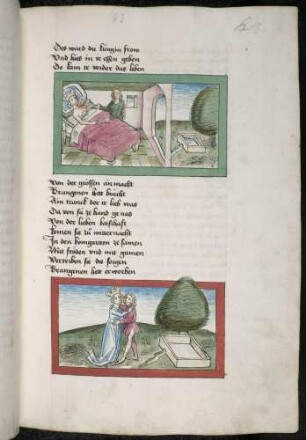 Des ward die kungin fro
Und hies in ir essen geben
Do kam ir wider das leben
Von der grossen ammacht
Brangenen hett bracht
Ain tranck der ir lieb was
Da von sú ze hand genas
Von der lieben botschaft
komen sú zú mitternacht
In den bomgarten zesamen
Mit fröden und mit gamen
Vertriben sú die sorgen
Brangenen hett erworben